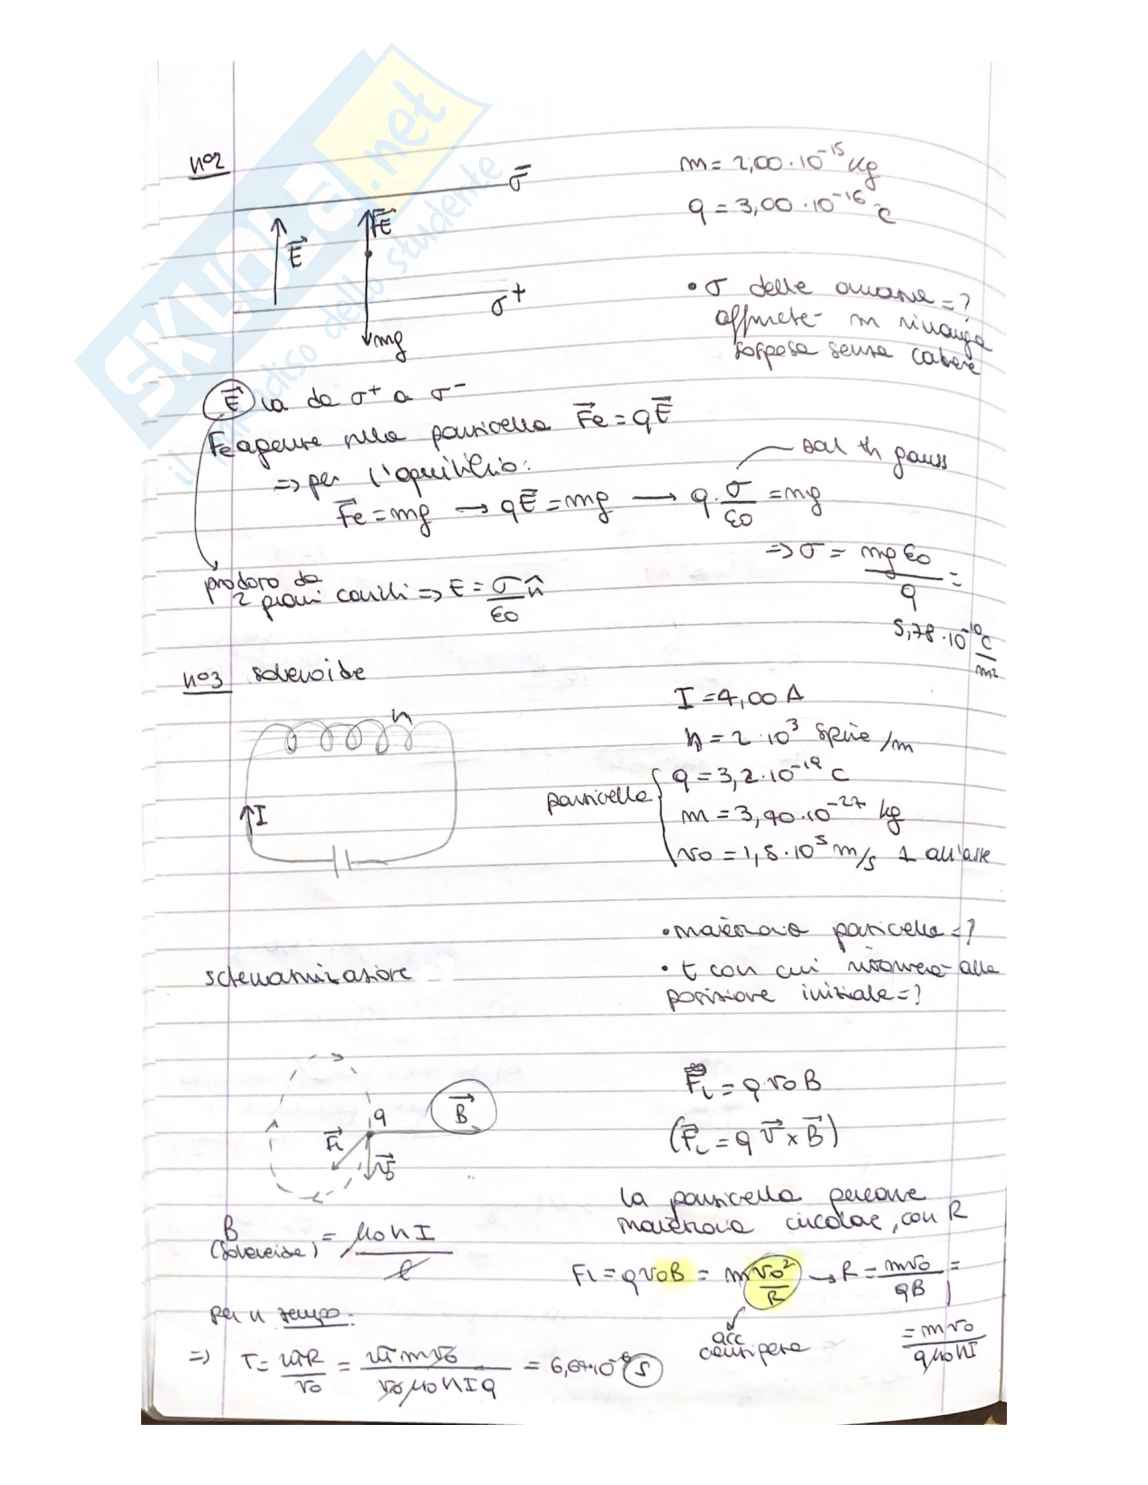 SKUOLA.net
il paradiso dello studente
n°2
σ⁻
m = 2,00·10⁻¹⁵ Kg
q = 3,00·10⁻¹⁶ C
E⃗
F⃗E
σ⁺
mg
• σ delle armature = ?
affinché m rimanga
sospesa senza cadere
E⃗ va da σ⁺ a σ⁻
Fe agente sulla particella F⃗e = qE⃗
⇒ per l'equilibrio:
dal th gauss
F⃗e = mg → qE⃗ = mg → q·σ/ε0 = mg
⇒ σ = mgε0/q =
5,78·10⁻¹⁰ C/m²
prodotto da
2 piani carichi ⇒ E = σ/ε0 n̂
n°3 solenoide
n
I
I = 4,00 A
n = 2·10³ spire/m
particella
q = 3,2·10⁻¹⁹ C
m = 3,90·10⁻²⁷ kg
v0 = 1,8·10⁵ m/s ⊥ all'asse
• traiettoria particella = ?
• t con cui ritornerà alla
posizione iniziale = ?
schematizzazione
q
B⃗
F⃗L
v⃗0
F⃗L = qv0B
(F⃗L = q v⃗ × B⃗)
la particella percorre
traiettoria circolare, con R
B (solenoide) = μ0nI/ℓ
FL = qv0B = m v0²/R → R = mv0/qB =
= mv0/qμ0nI
acc
centripeta
per il tempo:
⇒ T = 2πR/v0 = 2πmv0/v0μ0nIq = 6,64·10⁻⁶ s